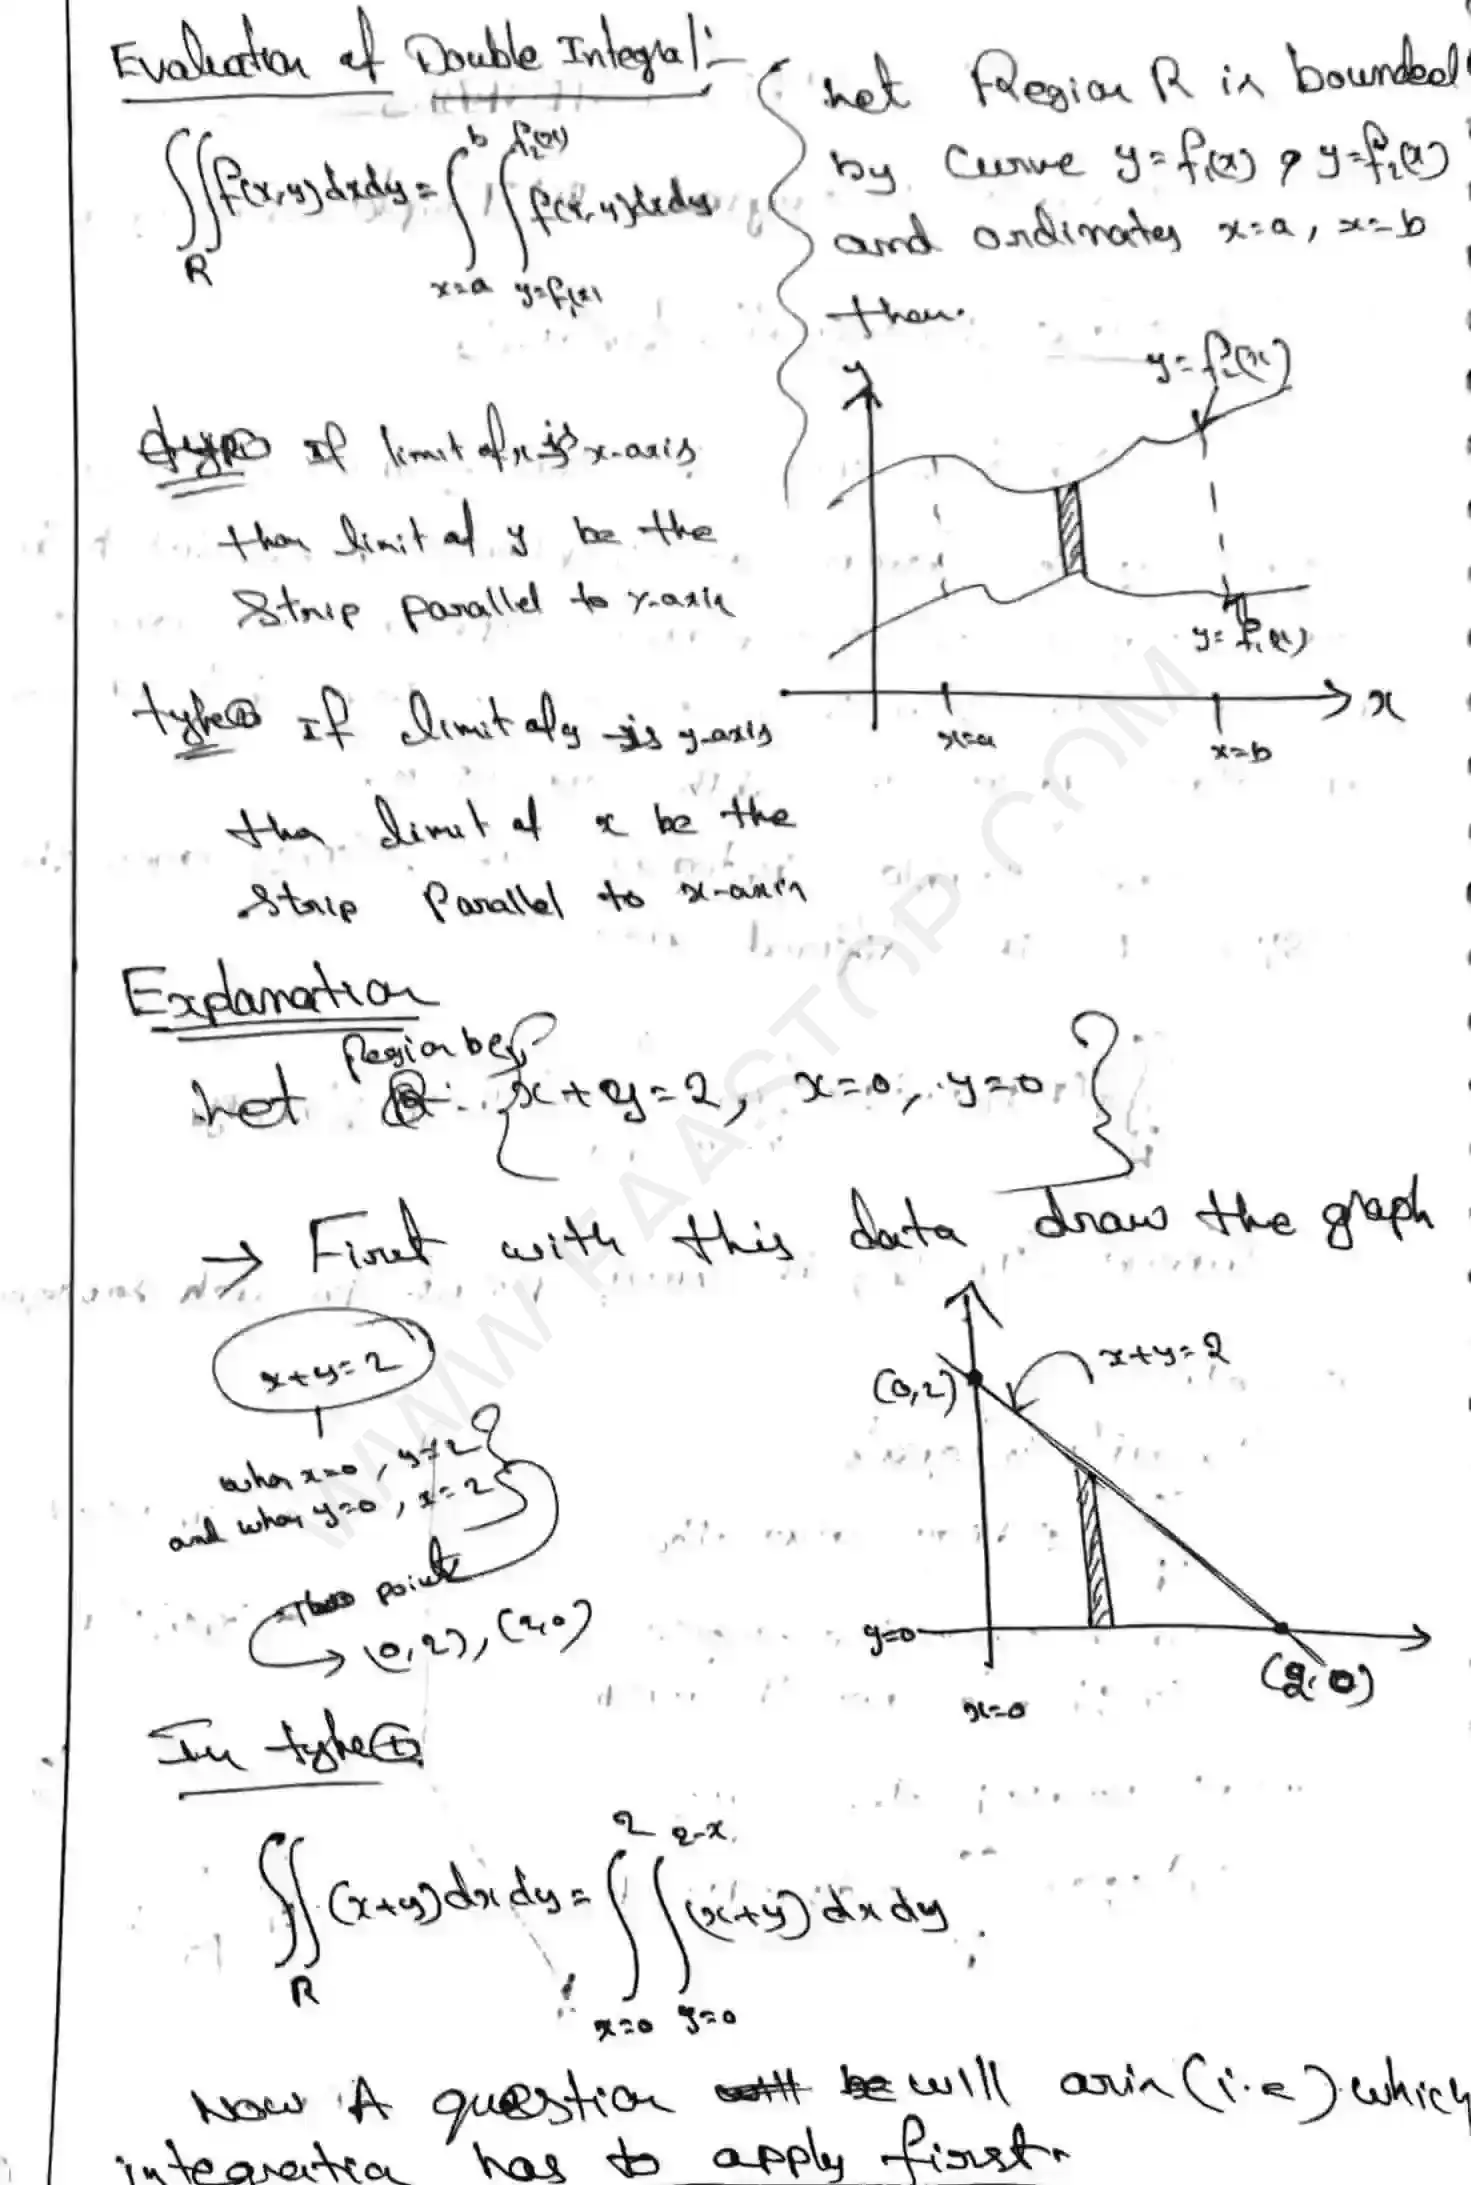 Evaluation of Double Integral:-
∬_R f(x,y)dxdy = ∫_{x=a}^{b} ∫_{y=f₁(x)}^{f₂(x)} f(x,y)dxdy
Let Region R is bounded
by Curve y=f₁(x), y=f₂(x)
and ordinates x=a, x=b
then.
y
y=f₂(x)
y=f₁(x)
x=a
x=b
x
type① If limit of x is x-axis
then limit of y be the
Strip parallel to Y-axis
type② If limit of y is y-axis
then limit of x be the
Strip Parallel to x-axis
Explanation
Let Region be { x+y=2, x=0, y=0 }
→ First with this data draw the graph
x+y=2
when x=0, y=2
and when y=0, x=2
points
→ (0,2), (2,0)
(0,2)
x+y=2
y=0
x=0
(2,0)
In type①
∬_R (x+y)dxdy = ∫_{x=0}^{2} ∫_{y=0}^{2-x} (x+y)dxdy
Now A question will arise (i.e) which
integration has to apply first
WWW.FAASTOP.COM